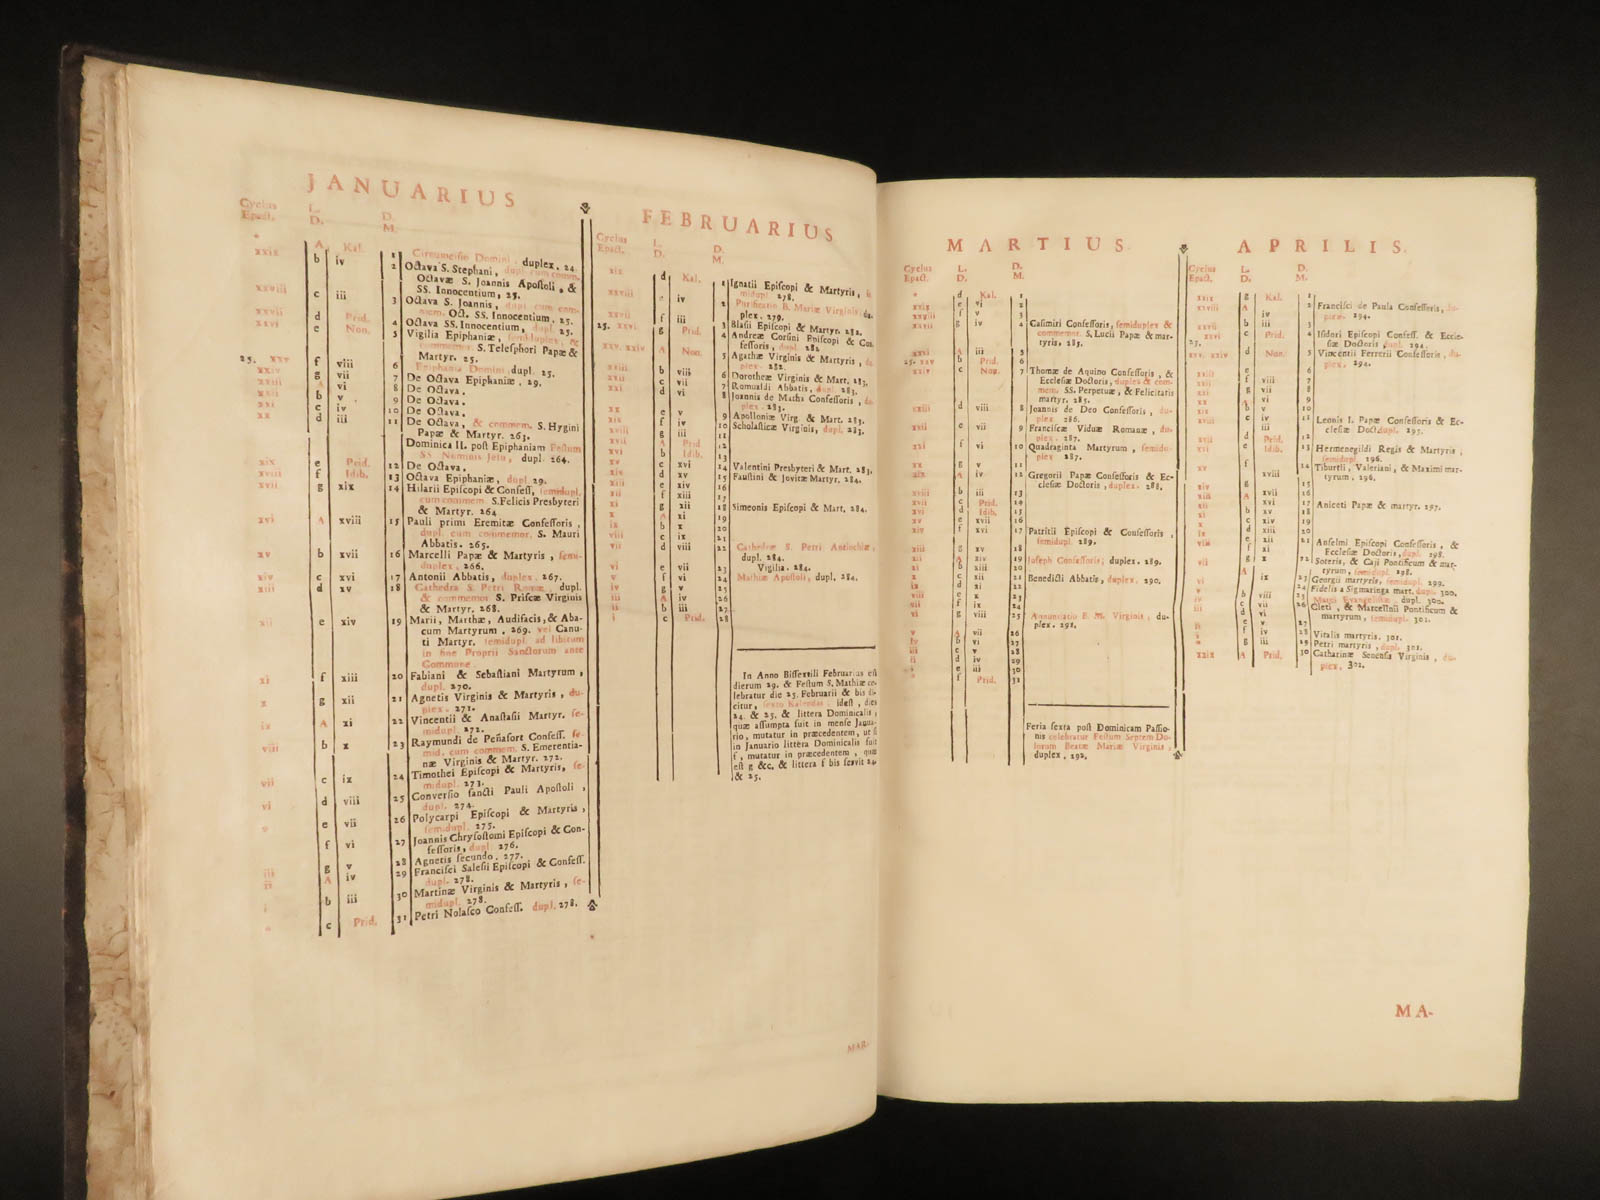 JANUARIUS
Cyclus L. D.
Epact. D. M.
* A Kal. 1 Circumcisio Domini, duplex. 24.
xxix b iv 2 Octava S. Stephani, dupl. cum comm.
Octavæ S. Joannis Apostoli, &
SS. Innocentium, 25.
xxviii c iii 3 Octava S. Joannis, dupl. cum com-
mem. Oct. SS. Innocentium, 25.
xxvii d Prid. 4 Octava SS. Innocentium, dupl. 25.
xxvi e Non. 5 Vigilia Epiphaniæ, semiduplex, &
commemor. S. Telesphori Papæ &
Martyr. 25.
25. xxv f viii 6 Epiphania Domini, dupl. 25.
xxiv g vii 7 De Octava Epiphaniæ, 29.
xxiii A vi 8 De Octava.
xxii b v 9 De Octava.
xxi c iv 10 De Octava.
xx d iii 11 De Octava, & commem. S. Hygini
Papæ & Martyr. 263.
Dominica II. post Epiphaniam Festum
SS Nominis Jesu, dupl. 264.
xix e Prid. 12 De Octava.
xviii f Idib. 13 Octava Epiphaniæ, dupl. 29.
xvii g xix 14 Hilarii Episcopi & Confess, semidupl.
cum commem. S. Felicis Presbyteri
& Martyr. 264
xvi A xviii 15 Pauli primi Eremitæ Confessoris,
dupl. cum commemor. S. Mauri
Abbatis. 265.
xv b xvii 16 Marcelli Papæ & Martyris, semi-
duplex, 266.
xiv c xvi 17 Antonii Abbatis, duplex. 267.
xiii d xv 18 Cathedra S. Petri Romæ, dupl.
& commemor S. Priscæ Virginis
& Martyr. 268.
xii e xiv 19 Marii, Marthæ, Audifacis, & Aba-
cum Martyrum. 269. vel Canu-
ti Martyr. semidupl. ad libitum
in fine Proprii Sanctorum ante
Commune.
xi f xiii 20 Fabiani & Sebastiani Martyrum,
dupl. 270.
x g xii 21 Agnetis Virginis & Martyris, du-
plex. 271.
ix A xi 22 Vincentii & Anastasii Martyr. se-
midupl. 272.
viii b x 23 Raymundi de Peñafort Confess. se-
mid. cum commem. S. Emerentia-
næ Virginis & Martyr. 272.
vii c ix 24 Timothei Episcopi & Martyris, se-
midupl. 273.
vi d viii 25 Conversio sancti Pauli Apostoli,
dupl. 274.
v e vii 26 Polycarpi Episcopi & Martyris,
semidupl. 275.
f vi 27 Joannis Chrysostomi Episcopi & Con-
fessoris, dupl. 276.
g v 28 Agnetis secundo. 277.
iii A iv 29 Francisci Salesii Episcopi & Confess.
dupl. 278.
b iii 30 Martinæ Virginis & Martyris, se-
midupl. 278.
* c Prid. 31 Petri Nolasco Confess. dupl. 278.
FEBRUARIUS
Cyclus L. D.
Epact. D. M.
xix d Kal. 1 Ignatii Episcopi & Martyris,
midupl. 278.
xxviii e iv 2 Purificatio B. Mariæ Virginis, du-
plex. 279.
xxvii f iii 3 Blasii Episcopi & Martyr. 282.
25. xxvi g Prid. 4 Andreæ Corsini Episcopi & Con-
fessoris, dupl. 282
xxv. xxiv A Non. 5 Agathæ Virginis & Martyris, du-
plex. 282.
xxiii b viii 6 Dorotheæ Virginis & Mart. 283.
xxii c vii 7 Romualdi Abbatis, dupl. 283.
xxi d vi 8 Joannis de Matha Confessoris, du-
plex. 283.
xx e v 9 Apolloniæ Virg. & Mart. 283.
xix f iv 10 Scholasticæ Virginis, dupl. 283.
xviii g iii 11
xvii A Prid 12
xvi b Idib. 13
xv c xvi 14 Valentini Presbyteri & Mart. 283.
xiv d xv 15 Faustini & Jovitæ Martyr. 284.
xiii e xiv 16
xii f xiii 17
xi g xii 18 Simeonis Episcopi & Mart. 284.
x A xi 19
ix b x 20
viii c ix 21
vii d viii 22 Cathedræ S. Petri Antiochiæ,
dupl. 284.
vi e vii 23 Vigilia. 284.
v f vi 24 Mathiæ Apostoli, dupl. 284.
iv g v 25
iii A iv 26
ii b iii 27
i c Prid. 28
In Anno Bissextili Februarius est
dierum 29. & Festum S. Mathiæ ce-
lebratur die 25. Februarii & bis di-
citur, sexto Kalendas. idest, dies
24. & 25. & littera Dominicalis,
quæ assumpta fuit in mense Janua-
rio, mutatur in præcedentem, ut si
in Januario littera Dominicalis fuit
f, mutatur in præcedentem, quæ
est g &c. & littera f bis servit 24.
& 25.
MAR-
MARTIUS.
Cyclus L. D.
Epact. D. M.
* d Kal. 1
xxix e vi 2
xxviii f v 3
xxvii g iv 4 Casimiri Confessoris, semiduplex &
commemor. S. Lucii Papæ & mar-
tyris, 285.
xxvi A iii 5
25. xxv b Prid. 6
xxiv c Non. 7 Thomæ de Aquino Confessoris, &
Ecclesiæ Doctoris, duplex & com-
mem. SS. Perpetuæ, & Felicitatis
martyr. 285.
xxiii d viii 8 Joannis de Deo Confessoris, du-
plex 286.
xxii e vii 9 Franciscæ Viduæ Romanæ, du-
plex. 287.
xxi f vi 10 Quadraginta Martyrum, semidu-
plex 287.
xx g v 11
xix A iv 12 Gregorii Papæ Confessoris & Ec-
clesiæ Doctoris, duplex. 288.
xviii b iii 13
xvii c Prid. 14
xvi d Idib. 15
xv e xvii 16
xiv f xvi 17 Patritii Episcopi & Confessoris,
semidupl. 289.
xiii g xv 18
xii A xiv 19 Joseph Confessoris; duplex. 289.
xi b xiii 20
x c xii 21 Benedicti Abbatis, duplex. 290.
ix d xi 22
viii e x 23
vii f ix 24
vi g viii 25 Annunciatio B. M. Virginis, du-
plex. 291.
v A vii 26
iv b vi 27
iii c v 28
ii d iv 29
i e iii 30
* f Prid. 31
Feria sexta post Dominicam Passio-
nis celebratur Festum Septem Do-
lorum Beatæ Mariæ Virginis,
duplex, 292.
APRILIS.
Cyclus L. D.
Epact. D. M.
xxix g Kal. 1
xxviii A iv 2 Francisci de Paula Confessoris, du-
plex. 294.
xxvii b iii 3
25. xxvi c Prid. 4 Isidori Episcopi Confess. & Eccle-
siæ Doctoris, dupl. 294.
xxv. xxiv d Non. 5 Vincentii Ferrerii Confessoris, du-
plex. 294.
xxiii e 6
xxii f viii 7
xxi g vii 8
xx A vi 9
xix b v 10
xviii c iv 11 Leonis I. Papæ Confessoris & Ec-
clesiæ Doct. dupl. 295.
xvii d Prid. 12
xvi e Idib. 13 Hermenegildi Regis & Martyris,
semidupl. 296.
xv f xviii 14 Tiburtii, Valeriani, & Maximi mar-
tyrum, 296.
xiv g 15
xiii A xvii 16
xii b xvi 17 Aniceti Papæ & martyr. 297.
xi b xv 18
x c xiv 19
ix d xiii 20
viii e xii 21 Anselmi Episcopi Confessoris, &
Ecclesiæ Doctoris, dupl. 298.
vii g x 22 Soteris, & Caji Pontificum & mar-
tyrum, semidupl. 298.
vi A ix 23 Georgii martyris, semidupl. 299.
24 Fidelis a Sigmaringa mart. dupl. 300.
b viii 25 Marci Evangelistæ, dupl. 300.
c vii 26 Cleti, & Marcellini Pontificum &
martyrum, semidupl. 301.
e v 27
f iv 28 Vitalis martyris. 301.
g iii 29 Petri martyris, dupl. 301.
xxix A Prid. 30 Catharinæ Senensis Virginis, du-
plex, 302.
MA-